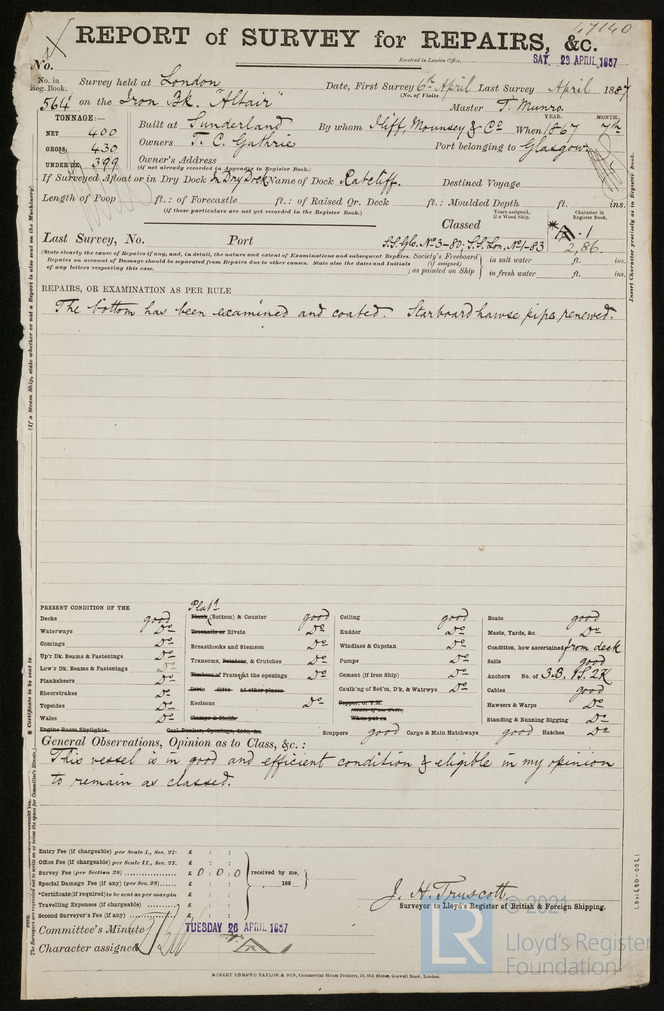 47140
REPORT of SURVEY for REPAIRS, &c.
Received in London Office, SAT. 23 APRIL 1887
No.
No. in Reg. Book. Survey held at London Date, First Survey 6th April Last Survey April 1887
(No. of Visits)
564 on the Iron Bk. "Altair" Master T. Munro.
TONNAGE:— YEAR. MONTH.
NET 400 Built at Sunderland By whom Iliff, Mounsey & Co When 1867 7th
GROSS, 430 Owners T. C. Guthrie Port belonging to Glasgow
UNDER DK. 399 Owner's Address
(if not already recorded in Appendix to Register Book.)
If Surveyed Afloat or in Dry Dock In Dry Dock Name of Dock Ratcliff. Destined Voyage
Length of Poop ft.: of Forecastle ft.: of Raised Qr. Deck ft.: Moulded Depth ft. ins.
(if these particulars are not yet recorded in the Register Book.)
Years assigned, if a Wood Ship. Character in Register Book.
Classed
Last Survey, No. Port S.S.Glo. No 3-80; S.S. Lon. No 1-83 A.1 2,86.
(State clearly the cause of Repairs if any, and, in detail, the nature and extent of Examinations and subsequent Repairs.
Repairs on account of Damage should be separated from Repairs due to other causes. State also the dates and Initials
of any letters respecting this case.
Society's Freeboard (if assigned) as painted on Ship in salt water ft. ins.
in fresh water ft. ins.
REPAIRS, OR EXAMINATION AS PER RULE
The bottom has been examined and coated. Starboard hawse pipe renewed.
PRESENT CONDITION OF THE
Decks good
Waterways Do
Comings Do
Up'r Dk. Beams & Fastenings Do
Low'r Dk. Beams & Fastenings Do
Planksheers Do
Sheerstrakes Do
Topsides Do
Wales Do
Engine Room Skylights
Platg
Plank (Bottom) & Counter good
Treenails or Rivets Do
Breasthooks and Stemson Do
Transoms, Pointers, & Crutches Do
Timbers of Frame at the openings Do
Ditto ditto at other places
Keelsons Do
Clamps & Shelfs
Coal Bunker, Openings, Lids, &c.
Ceiling good
Rudder Do
Windlass & Capstan Do
Pumps Do
Cement (if Iron Ship) Do
Caulk'ng of Bot'm, D'k, & Watrwys Do
Copper, or Y.M.
When put on
Scuppers good Cargo & Main Hatchways good Hatches Do
Boats good
Masts, Yards, &c. Do
Condition, how ascertained from deck
Sails good
Anchors No. of 3.B. 1S. 2K
Cables good
Hawsers & Warps Do
Standing & Running Rigging Do
General Observations, Opinion as to Class, &c.:
This vessel is in good and efficient condition & eligible in my opinion
to remain as classed.
Entry Fee (if chargeable) per Scale I., Sec. 27. £ : :
Office Fee (if chargeable) per Scale II., Sec. 27. £ : :
Survey Fee (per Section 28) £ 0 : 0 : 0 received by me,
Special Damage Fee (if any) (per Sec. 28) £ : : 188
*Certificate (if required) to be sent as per margin £ : :
Travelling Expenses (if chargeable) £ : :
Second Surveyor's Fee (if any) £ : :
J. H. Truscott
Surveyor to Lloyd's Register of British & Foreign Shipping.
Committee's Minute TUESDAY 26 APRIL 1887
Character assigned
ROBERT EDMUND TAYLOR & SON, Commercial Steam Printers, 19, Old Street, Goswell Road, London.
(If a Steam Ship, state whether or not a Report is also sent on the Machinery)
Insert Character precisely as in Register Book.
* Certificate to be sent to
LR
© 2021
Lloyd's Register
Foundation